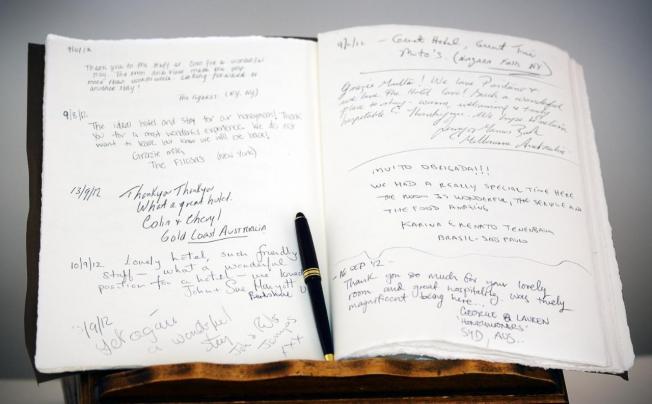 Thank you to the staff at
for a wonderful
stay. The
more than
Looking forward to
another stay!
(NY, NY)
9/8/12
The ideal hotel and stay for our honeymoon! Thank
you for a most wonderful experience. We do not
want to leave but know we will be back!
Grazie mille,
The (New York)
13/9/12 Thankyou Thankyou
What a great hotel.
Colin & Cheryl
Gold Coast AUSTRALIA
10/9/12 Lovely hotel, such friendly
staff - what a wonderful
position for a hotel - we loved
John + Sue
/9/12
Yet again
a wonderful
stay
xxx
9/ /12 - Great Hotel, Great Time
(Niagara Falls NY)
Grazie Multo! We love Positano &
we love the Hotel love! Such a wonderful
place to stay - warm, welcoming & truly
hospitable.
Melbourne Australia
¡MUITO OBRIGADA!!!
WE HAD A REALLY SPECIAL TIME HERE
THE ROOM IS WONDERFUL, THE SERVICE AND
THE FOOD AMAZING
KARINA & RENATO
BRASIL - SÃO PAULO
16 SEP '12 -
Thank you so much for your lovely
room and great hospitality, was truely
magnificent being here...
GEORGE & LAUREN
HONEYMOONERS
SYD, AUS..